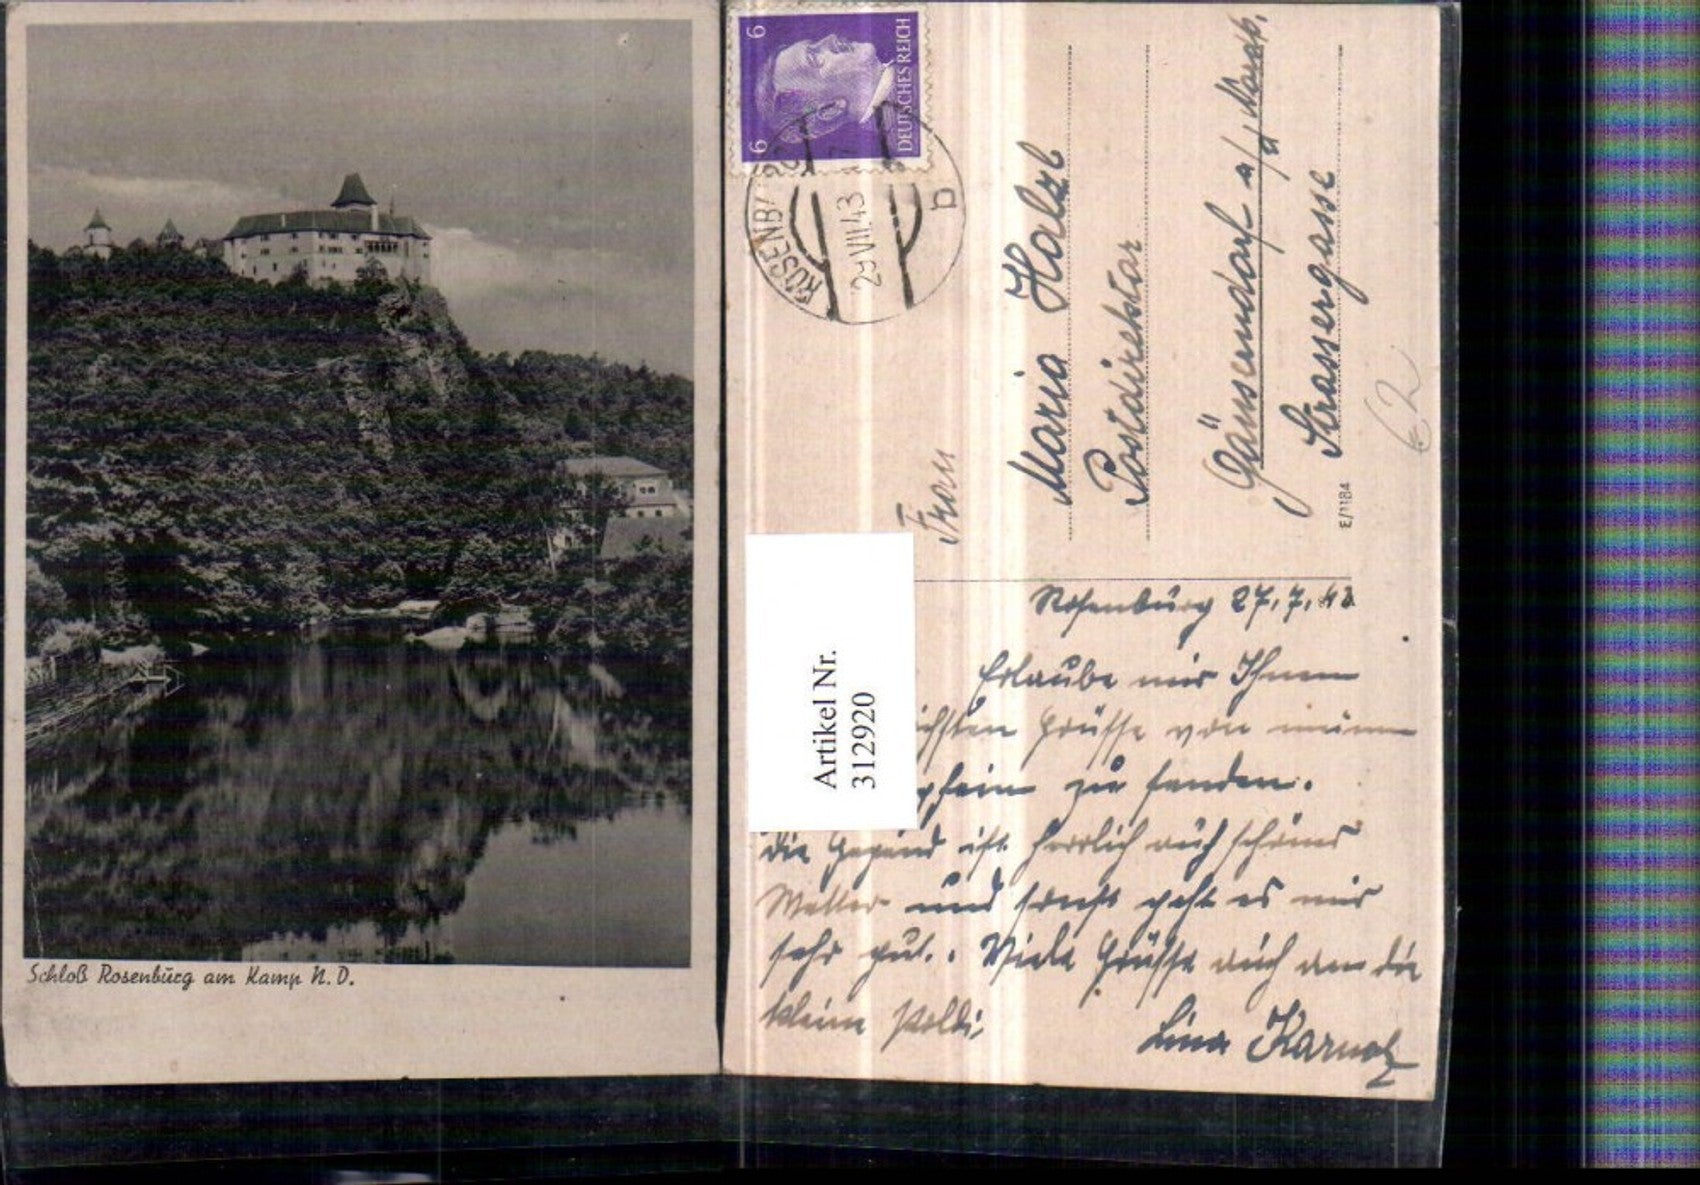 Schloß Rosenburg am Kamp N. D.
6 6
DEUTSCHES REICH
ROSENBURG
29.VII.43
b
Frau
Maria Holzb
Postdirektor
Gänserndorf a/
Strassergasse
E/1184
€2
Artikel Nr.
312920
Rosenburg 27.7.43
Erlaube mir Ihnen
ichsten Grüsse von meinem
zu senden.
die Gegend ist herrlich auch schönes
Wetter und sonst geht es mir
sehr gut. Viele Grüsse auch an die
kleine Poldi.
Lina